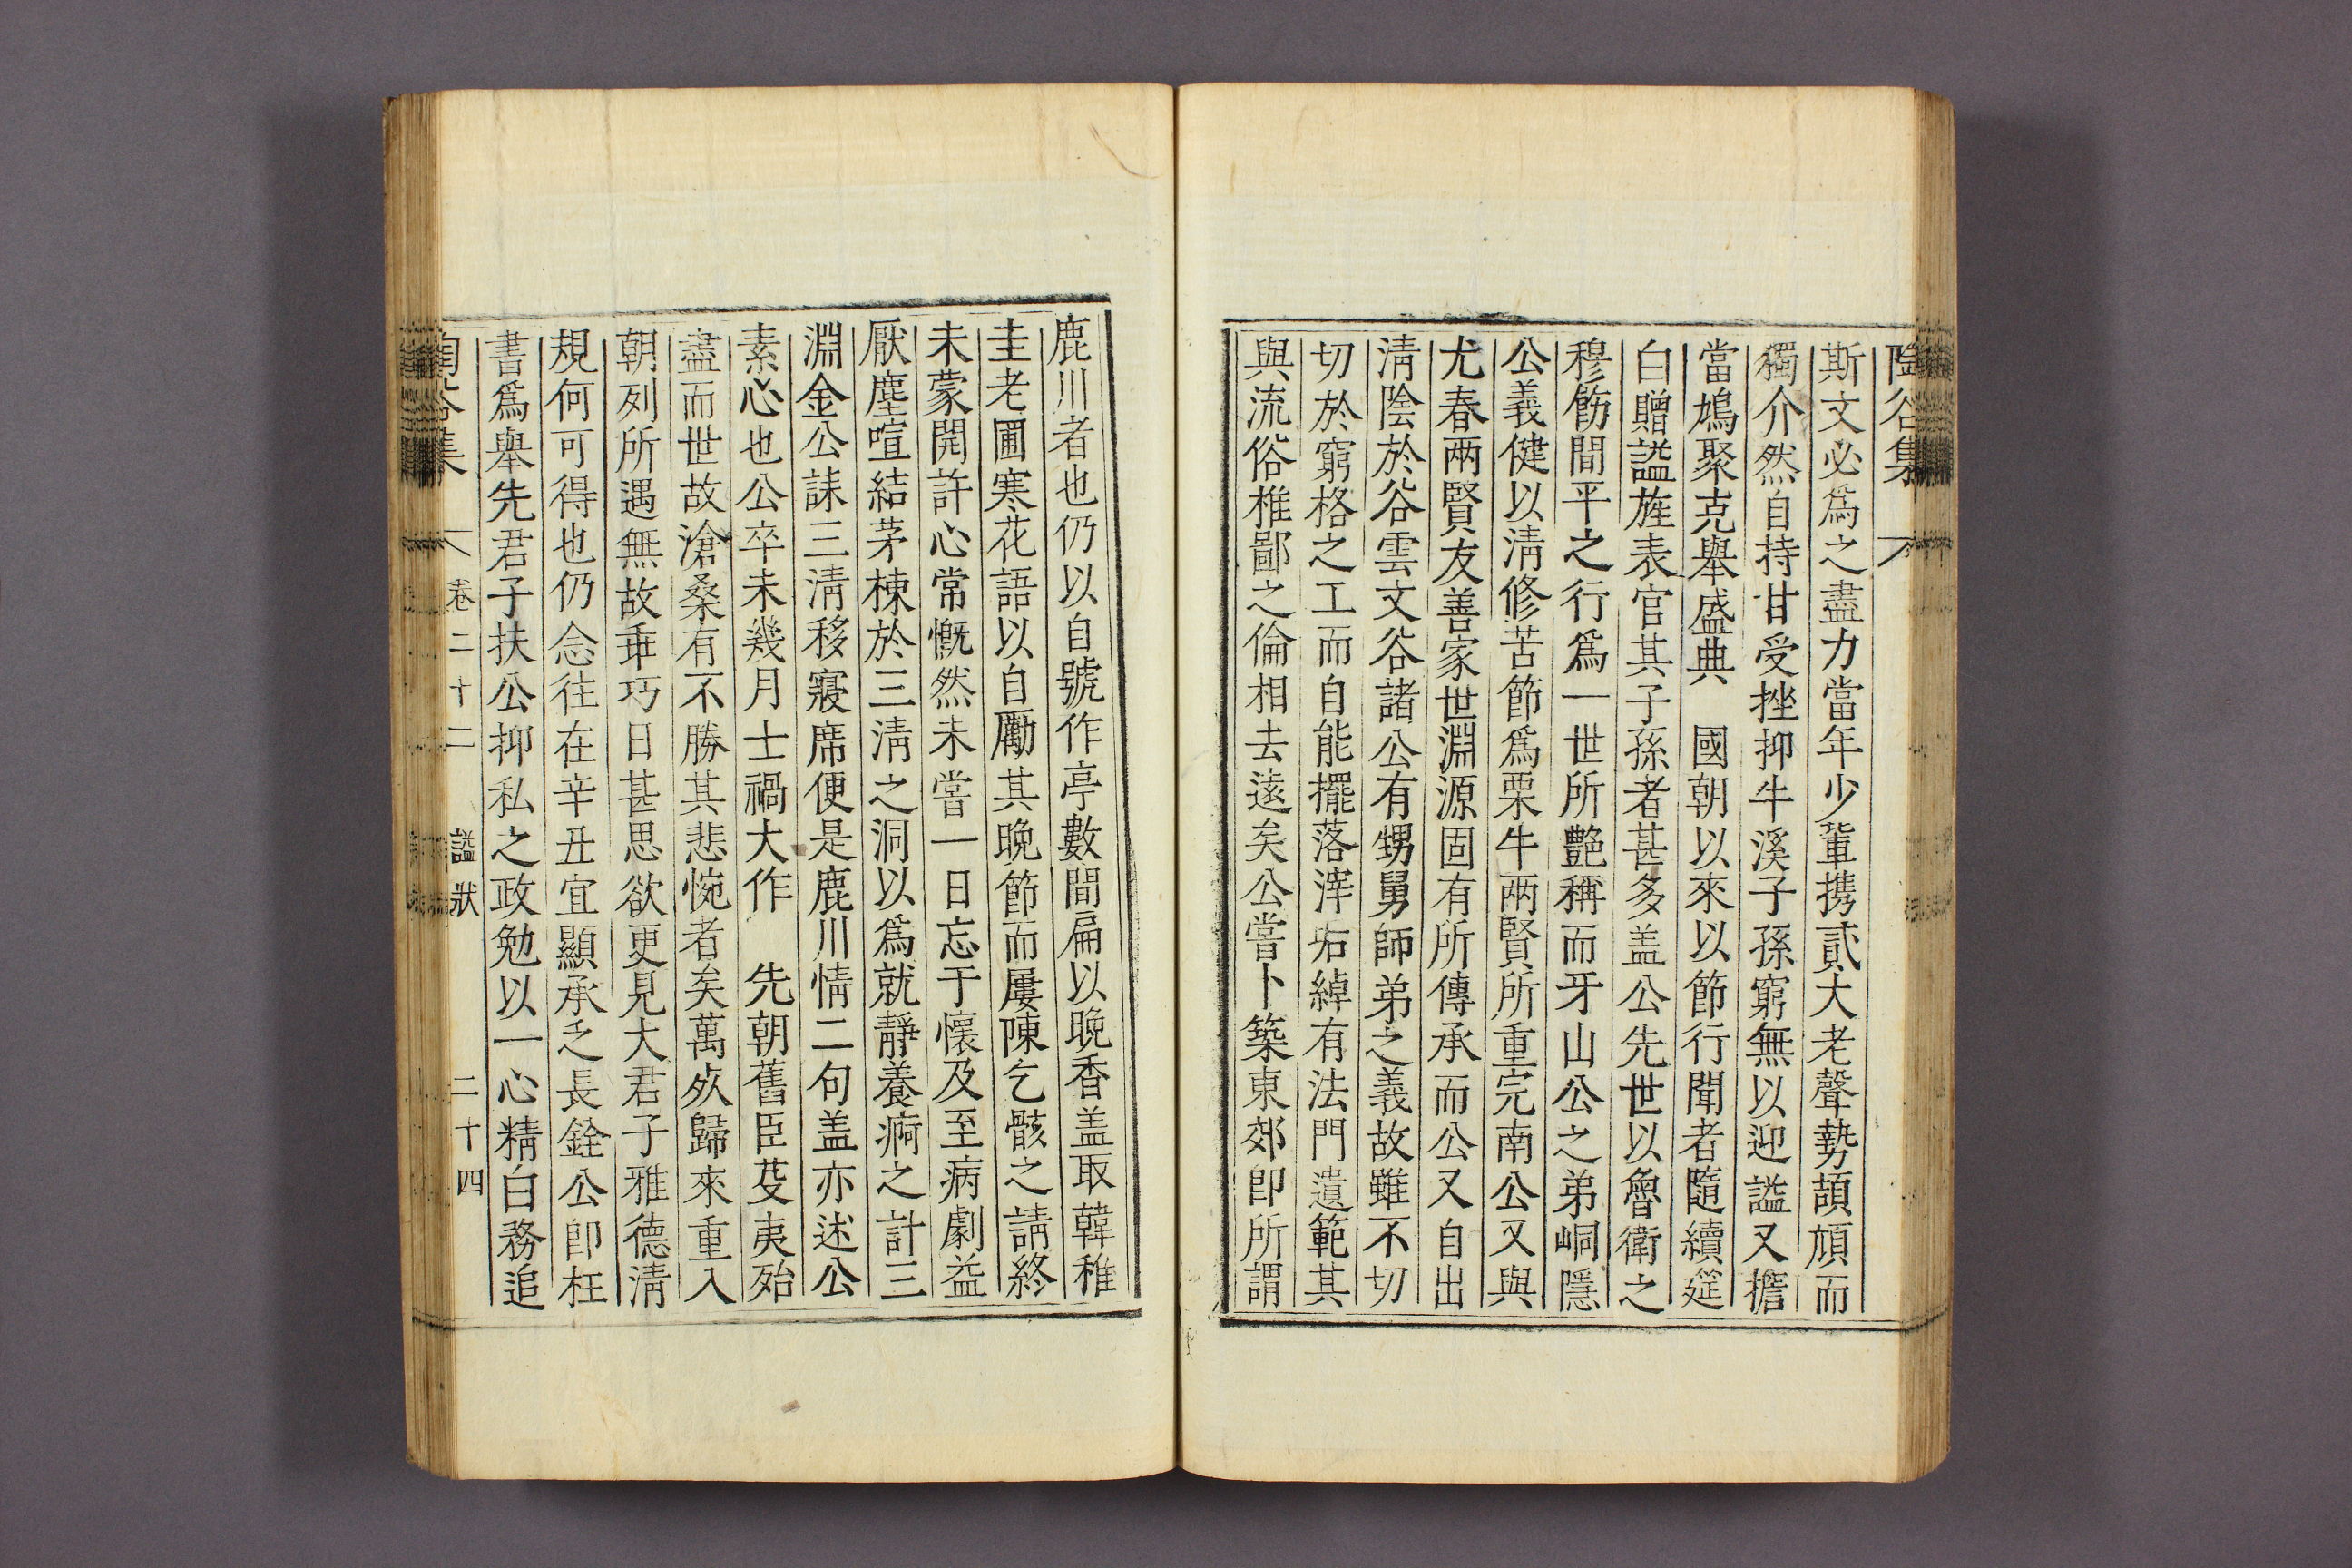 陶谷集
斯文必爲之盡力當年少輩携貳大老聲勢頡頏而
獨介然自持甘受挫抑牛溪子孫窮無以迎諡又擔
當鳩聚克舉盛典 國朝以來以節行聞者隨續筵
白贈諡旌表官其子孫者甚多盖公先世以魯衛之
穆飭間平之行爲一世所艶稱而牙山公之弟峒隱
公義健以淸修苦節爲栗牛兩賢所重完南公又與
尤春兩賢友善家世淵源固有所傳承而公又自出
淸陰於谷雲文谷諸公有甥舅師弟之義故雖不切
切於窮格之工而自能擺落滓垢綽有法門遺範其
與流俗椎鄙之倫相去遠矣公嘗卜築東郊卽所謂
鹿川者也仍以自號作亭數間扁以晩香盖取韓稚
圭老圃寒花語以自勵其晩節而屢陳乞骸之請終
未蒙開許心常慨然未嘗一日忘于懷及至病劇益
厭塵喧結茅棟於三淸之洞以爲就靜養痾之計三
淵金公誄三淸移寢席便是鹿川情二句盖亦述公
素心也公卒未幾月士禍大作 先朝舊臣芟夷殆
盡而世故滄桑有不勝其悲惋者矣萬死歸來重入
朝列所遇無故乖巧日甚思欲更見大君子雅德淸
規何可得也仍念往在辛丑宜顯承乏長銓公卽枉
書爲舉先君子扶公抑私之政勉以一心精白務追
陶谷集 卷二十二 諡狀 二十四